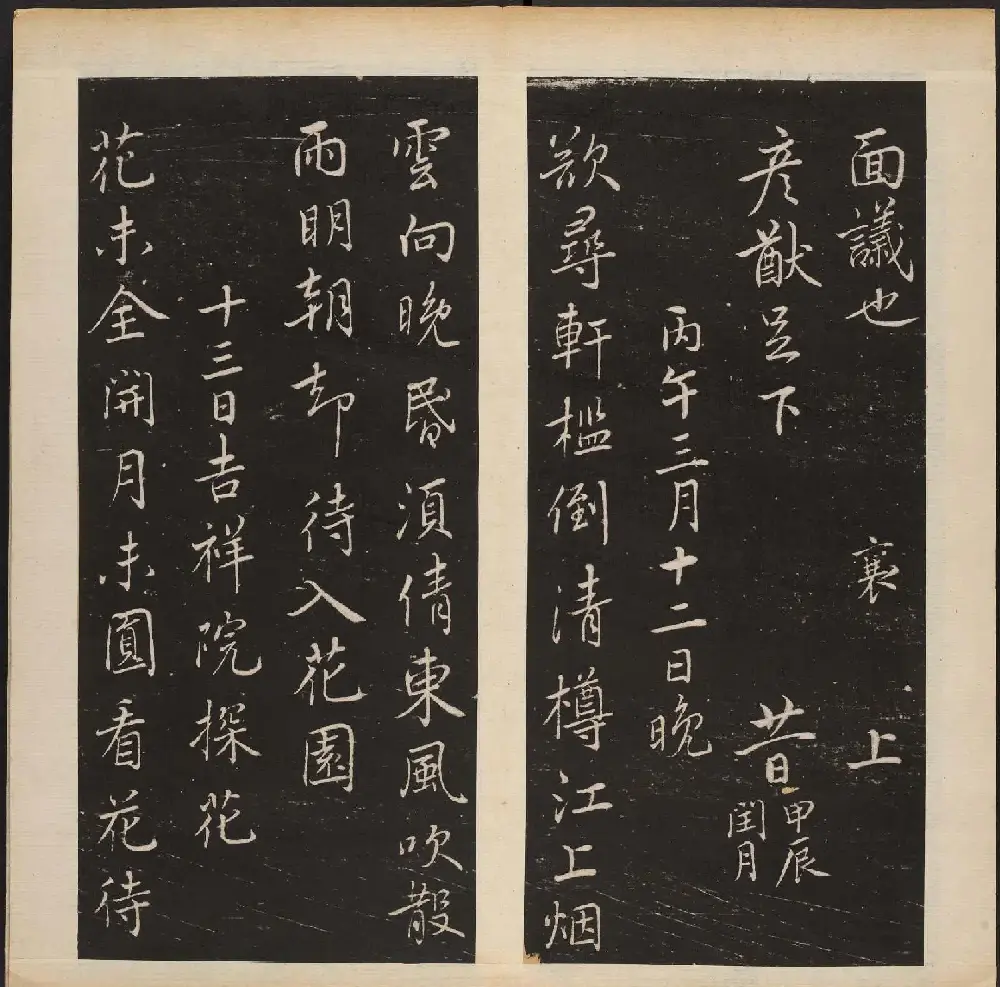 面議也 襄 上
彦猷足下 廿一日甲辰
閏月
丙午三月十二日晚
欲尋軒檻倒清樽江上烟
雲向晚昏須倩東風吹散
雨明朝却待入花園
十三日吉祥院探花
花未全開月未圓看花待